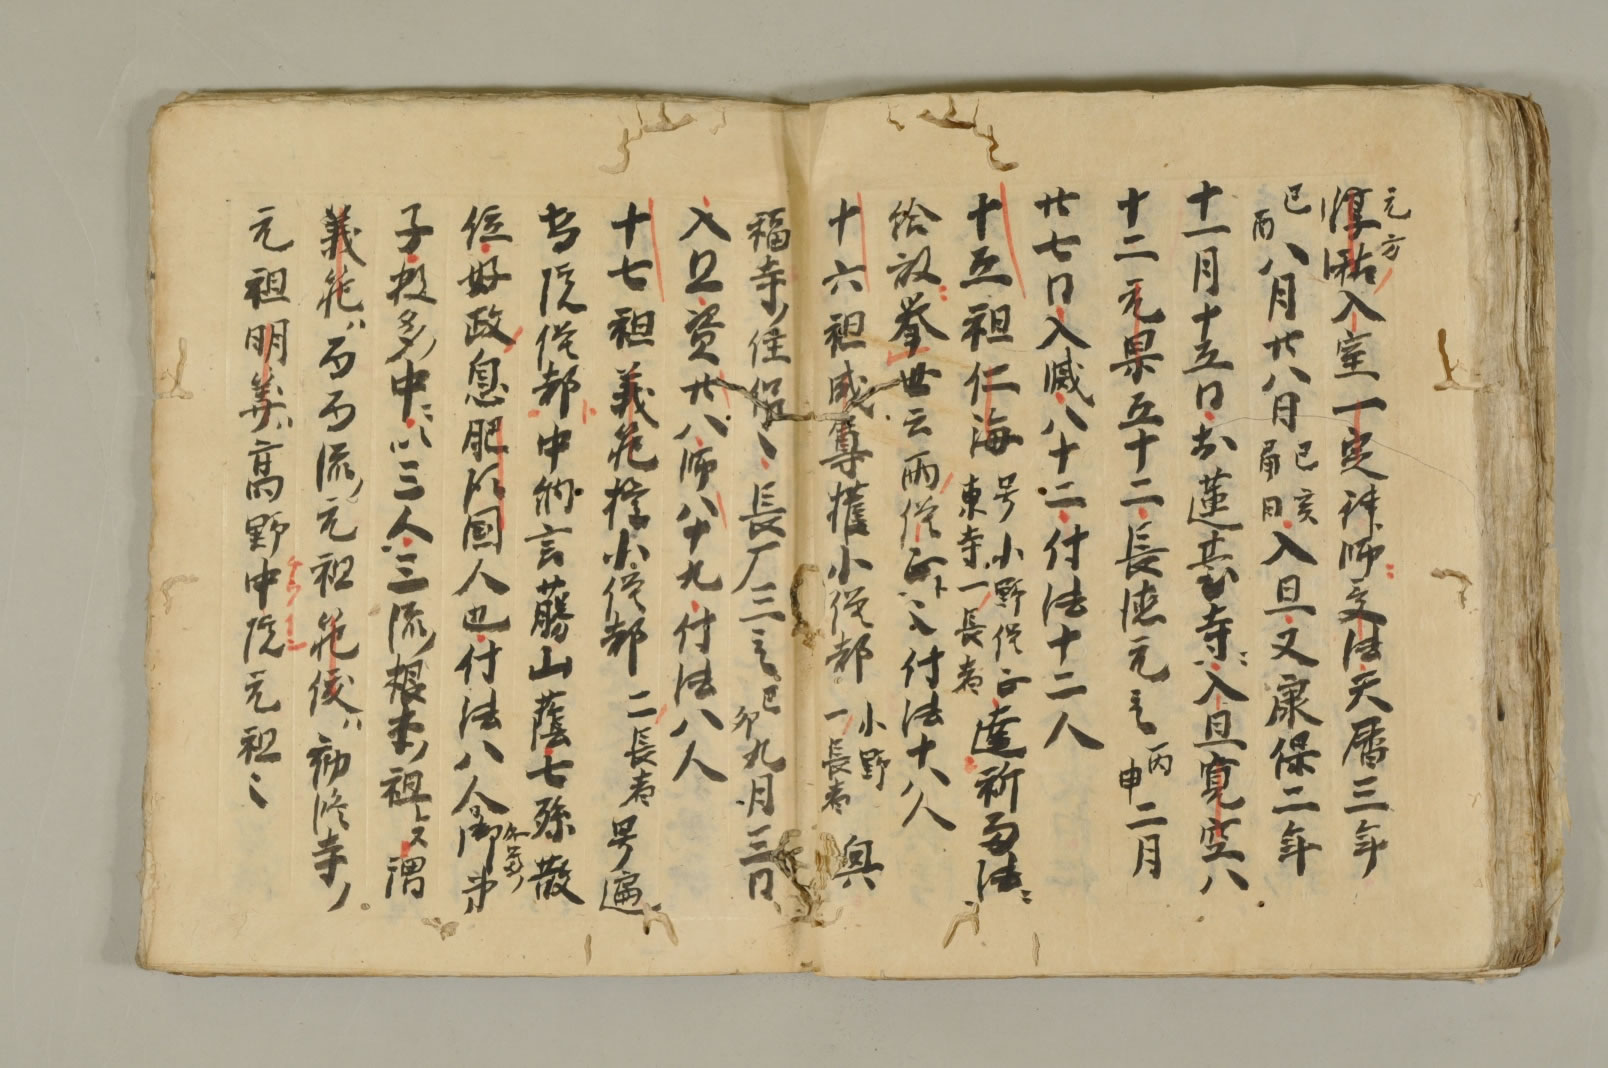 元方
淳祐入室一定律師受法天暦三年
己酉八月廿八日己亥扇日入旦又康保二年
十一月十五日於蓮臺寺入旦寛空八
十二元果五十二長徳元之丙申二月
廿七日入滅八十二付法十二人
十五祖仁海号小野僧正東寺一長者達祈雨法
給放輦世云雨僧正付法十八人
十六祖成尊權小僧都小野一長者興
福寺住侶長厂三之己卯九月三日
入旦資廿八師八十九付法八人
十七祖義范權小僧都二長者号遍
智院僧都中納言藤山蔭七孫散
位好政息肥後國人也付法八人
子投多中以三人三流根本祖謂
義范 流元祖范俊勧修寺
元祖明算高野中院元祖